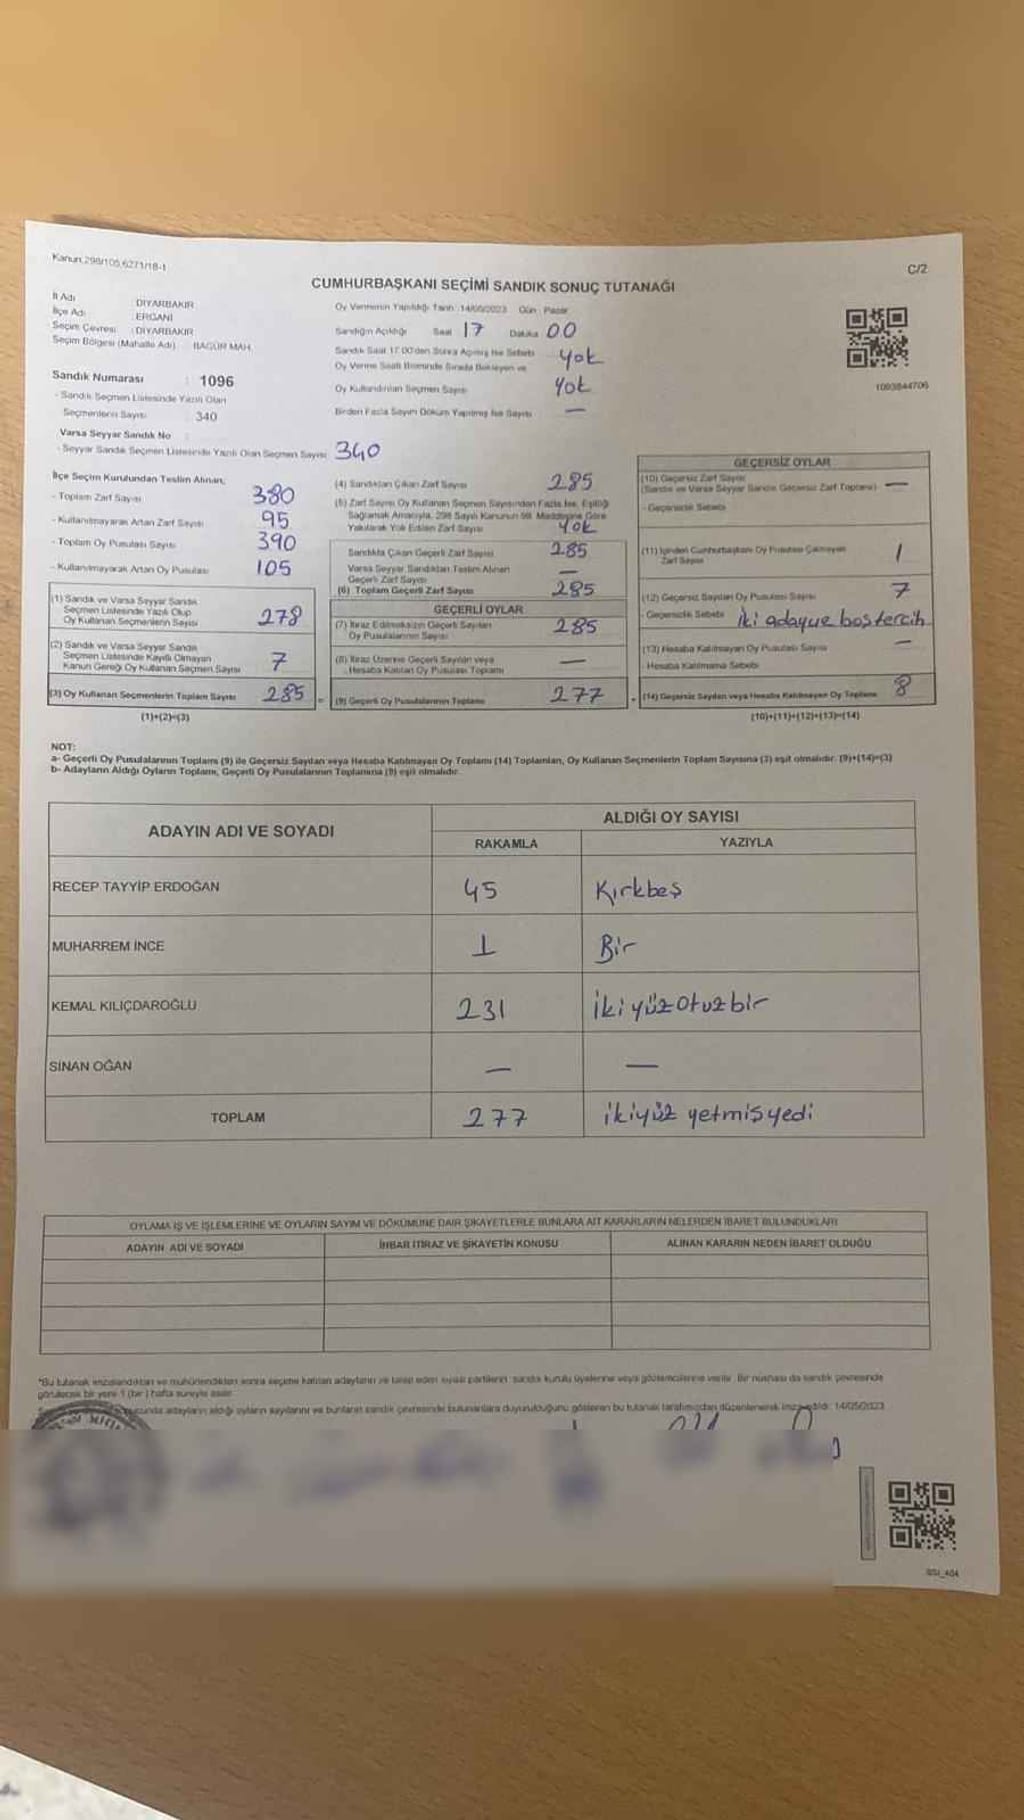 Kanun.298/105,6271/18-1
C/2
CUMHURBAŞKANI SEÇİMİ SANDIK SONUÇ TUTANAĞI
İl Adı : DİYARBAKIR
İlçe Adı : ERGANİ
Seçim Çevresi : DİYARBAKIR
Seçim Bölgesi (Mahalle Adı) : BAGÜR MAH.
Sandık Numarası : 1096
- Sandık Seçmen Listesinde Yazılı Olan
Seçmenlerin Sayısı : 340
Varsa Seyyar Sandık No :
- Seyyar Sandık Seçmen Listesinde Yazılı Olan Seçmen Sayısı 340
Oy Vermenin Yapıldığı Tarih :14/05/2023 Gün : Pazar
Sandığın Açıldığı Saat 17 Dakika 00
Sandık Saat 17.00'den Sonra Açılmış İse Sebebi Yok
Oy Verme Saati Bitiminde Sırada Bekleyen ve
Oy Kullandırılan Seçmen Sayısı Yok
Birden Fazla Sayım Döküm Yapılmış İse Sayısı —
1093844706
İlçe Seçim Kurulundan Teslim Alınan;
- Toplam Zarf Sayısı 380
- Kullanılmayarak Artan Zarf Sayısı 95
- Toplam Oy Pusulası Sayısı 390
- Kullanılmayarak Artan Oy Pusulası 105
(1) Sandık ve Varsa Seyyar Sandık
Seçmen Listesinde Yazılı Olup
Oy Kullanan Seçmenlerin Sayısı 278
(2) Sandık ve Varsa Seyyar Sandık
Seçmen Listesinde Kayıtlı Olmayan
Kanun Gereği Oy Kullanan Seçmen Sayısı 7
(3) Oy Kullanan Seçmenlerin Toplam Sayısı 285
(1)+(2)=(3)
(4) Sandıktan Çıkan Zarf Sayısı 285
(5) Zarf Sayısı Oy Kullanan Seçmen Sayısından Fazla İse, Eşitliği
Sağlamak Amacıyla, 298 Sayılı Kanunun 98. Maddesine Göre
Yakılarak Yok Edilen Zarf Sayısı Yok
Sandıkta Çıkan Geçerli Zarf Sayısı 285
Varsa Seyyar Sandıktan Teslim Alınan
Geçerli Zarf Sayısı —
(6) Toplam Geçerli Zarf Sayısı 285
GEÇERLİ OYLAR
(7) İtiraz Edilmeksizin Geçerli Sayılan
Oy Pusulalarının Sayısı 285
(8) İtiraz Üzerine Geçerli Sayılan veya
Hesaba Katılan Oy Pusulası Toplamı —
= (9) Geçerli Oy Pusulalarının Toplamı 277
GEÇERSİZ OYLAR
(10) Geçersiz Zarf Sayısı
(Sandık ve Varsa Seyyar Sandık Geçersiz Zarf Toplamı) —
- Geçersizlik Sebebi
(11) İçinden Cumhurbaşkanı Oy Pusulası Çıkmayan
Zarf Sayısı 1
(12) Geçersiz Sayılan Oy Pusulası Sayısı 7
- Geçersizlik Sebebi iki adayue bostercih
(13) Hesaba Katılmayan Oy Pusulası Sayısı —
- Hesaba Katılmama Sebebi
+ (14) Geçersiz Sayılan veya Hesaba Katılmayan Oy Toplamı 8
(10)+(11)+(12)+(13)=(14)
NOT:
a- Geçerli Oy Pusulalarının Toplamı (9) ile Geçersiz Sayılan veya Hesaba Katılmayan Oy Toplamı (14) Toplamları, Oy Kullanan Seçmenlerin Toplam Sayısına (3) eşit olmalıdır. (9)+(14)=(3)
b- Adayların Aldığı Oyların Toplamı, Geçerli Oy Pusulalarının Toplamına (9) eşit olmalıdır.
ADAYIN ADI VE SOYADI
ALDIĞI OY SAYISI
RAKAMLA YAZIYLA
RECEP TAYYİP ERDOĞAN 45 Kırkbeş
MUHARREM İNCE 1 Bir
KEMAL KILIÇDAROĞLU 231 ikiyüzotuzbir
SİNAN OĞAN — —
TOPLAM 277 ikiyüz yetmişyedi
OYLAMA İŞ VE İŞLEMLERİNE VE OYLARIN SAYIM VE DÖKÜMÜNE DAİR ŞİKAYETLERLE BUNLARA AİT KARARLARIN NELERDEN İBARET BULUNDUKLARI
ADAYIN ADI VE SOYADI İHBAR İTİRAZ VE ŞİKAYETİN KONUSU ALINAN KARARIN NEDEN İBARET OLDUĞU
*Bu tutanak imzalandıktan ve mühürlendikten sonra seçime katılan adayların ve talep eden siyasi partilerin sandık kurulu üyelerine veya gözlemcilerine verilir. Bir nüshası da sandık çevresinde
görülecek bir yere 1 (bir) hafta süreyle asılır.
sonunda adayların aldığı oyların sayılarını ve bunların sandık çevresinde bulunanlara duyurulduğunu gösteren bu tutanak tarafımızdan düzenlenerek imza edildi. 14/05/2023
SSI_404